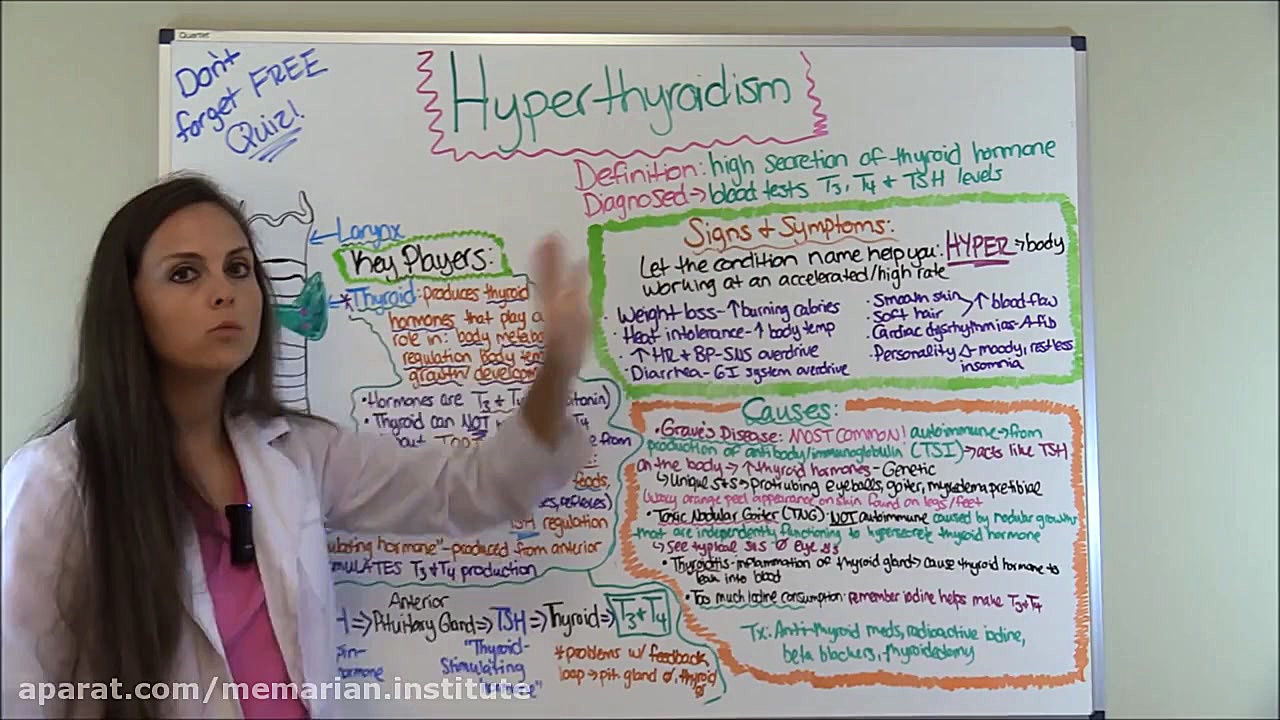 Quartet
Don't
forget FREE
Quiz!
Hyperthyroidism
Definition: high secretion of thyroid hormone
Diagnosed→ blood tests T3, T4 + TSH levels
Larynx
Key Players:
*Thyroid: produces thyroid
hormones that play a
role in: body metabo
regulation Body tem
growth/developm
• Hormones are T3 + T4 itonin)
• Thyroid can NOT T4
from
feeds,
reflexes)
TSH regulation
ulating hormone"-produced from anterior
MULATES T3 + T4 production
Anterior
⇒Pituitary Gland⇒TSH⇒Thyroid⇒T3+T4
hormone
"Thyroid-
Stimulating
*problems w/ feedback
loop→pit gland Ø, thyroid
Ø
Signs + Symptoms:
Let the condition name help you: HYPER→body
working at an accelerated/high rate
• Weight loss-↑burning calories
• Heat intolerance-↑ body temp
• ↑ HR + BP-SNS overdrive
• Diarrhea-GI system overdrive
• Smooth skin ↑ blood flow
• Soft hair
• Cardiac dysrhythmias-A-fib
• Personality Δ-moody, restless
insomnia
Causes:
• Grave's Disease: MOST COMMON! autoimmune→from
production of antibody/immunoglobulin (TSI)→acts like TSH
on the body→↑thyroid hormones-Genetic
↳Unique s+s→Protrubing eyeballs, goiter, myxedema pretibial
(waxy orange peel appearance on skin found on legs/feet
• Toxic Nodular Goiter (TNG): NOT autoimmune caused by nodular growths
that are independently functioning to hypersecrete thyroid hormone
↳ See typical s+s Ø eye s+s
• Thyroiditis-inflammation of thyroid gland→cause thyroid hormone to
leak into blood
• Too much Iodine consumption: remember iodine helps make T3+T4
Tx: Anti-thyroid meds, radioactive iodine,
beta blockers, thyroidectomy
aparat.com/memarian.institute